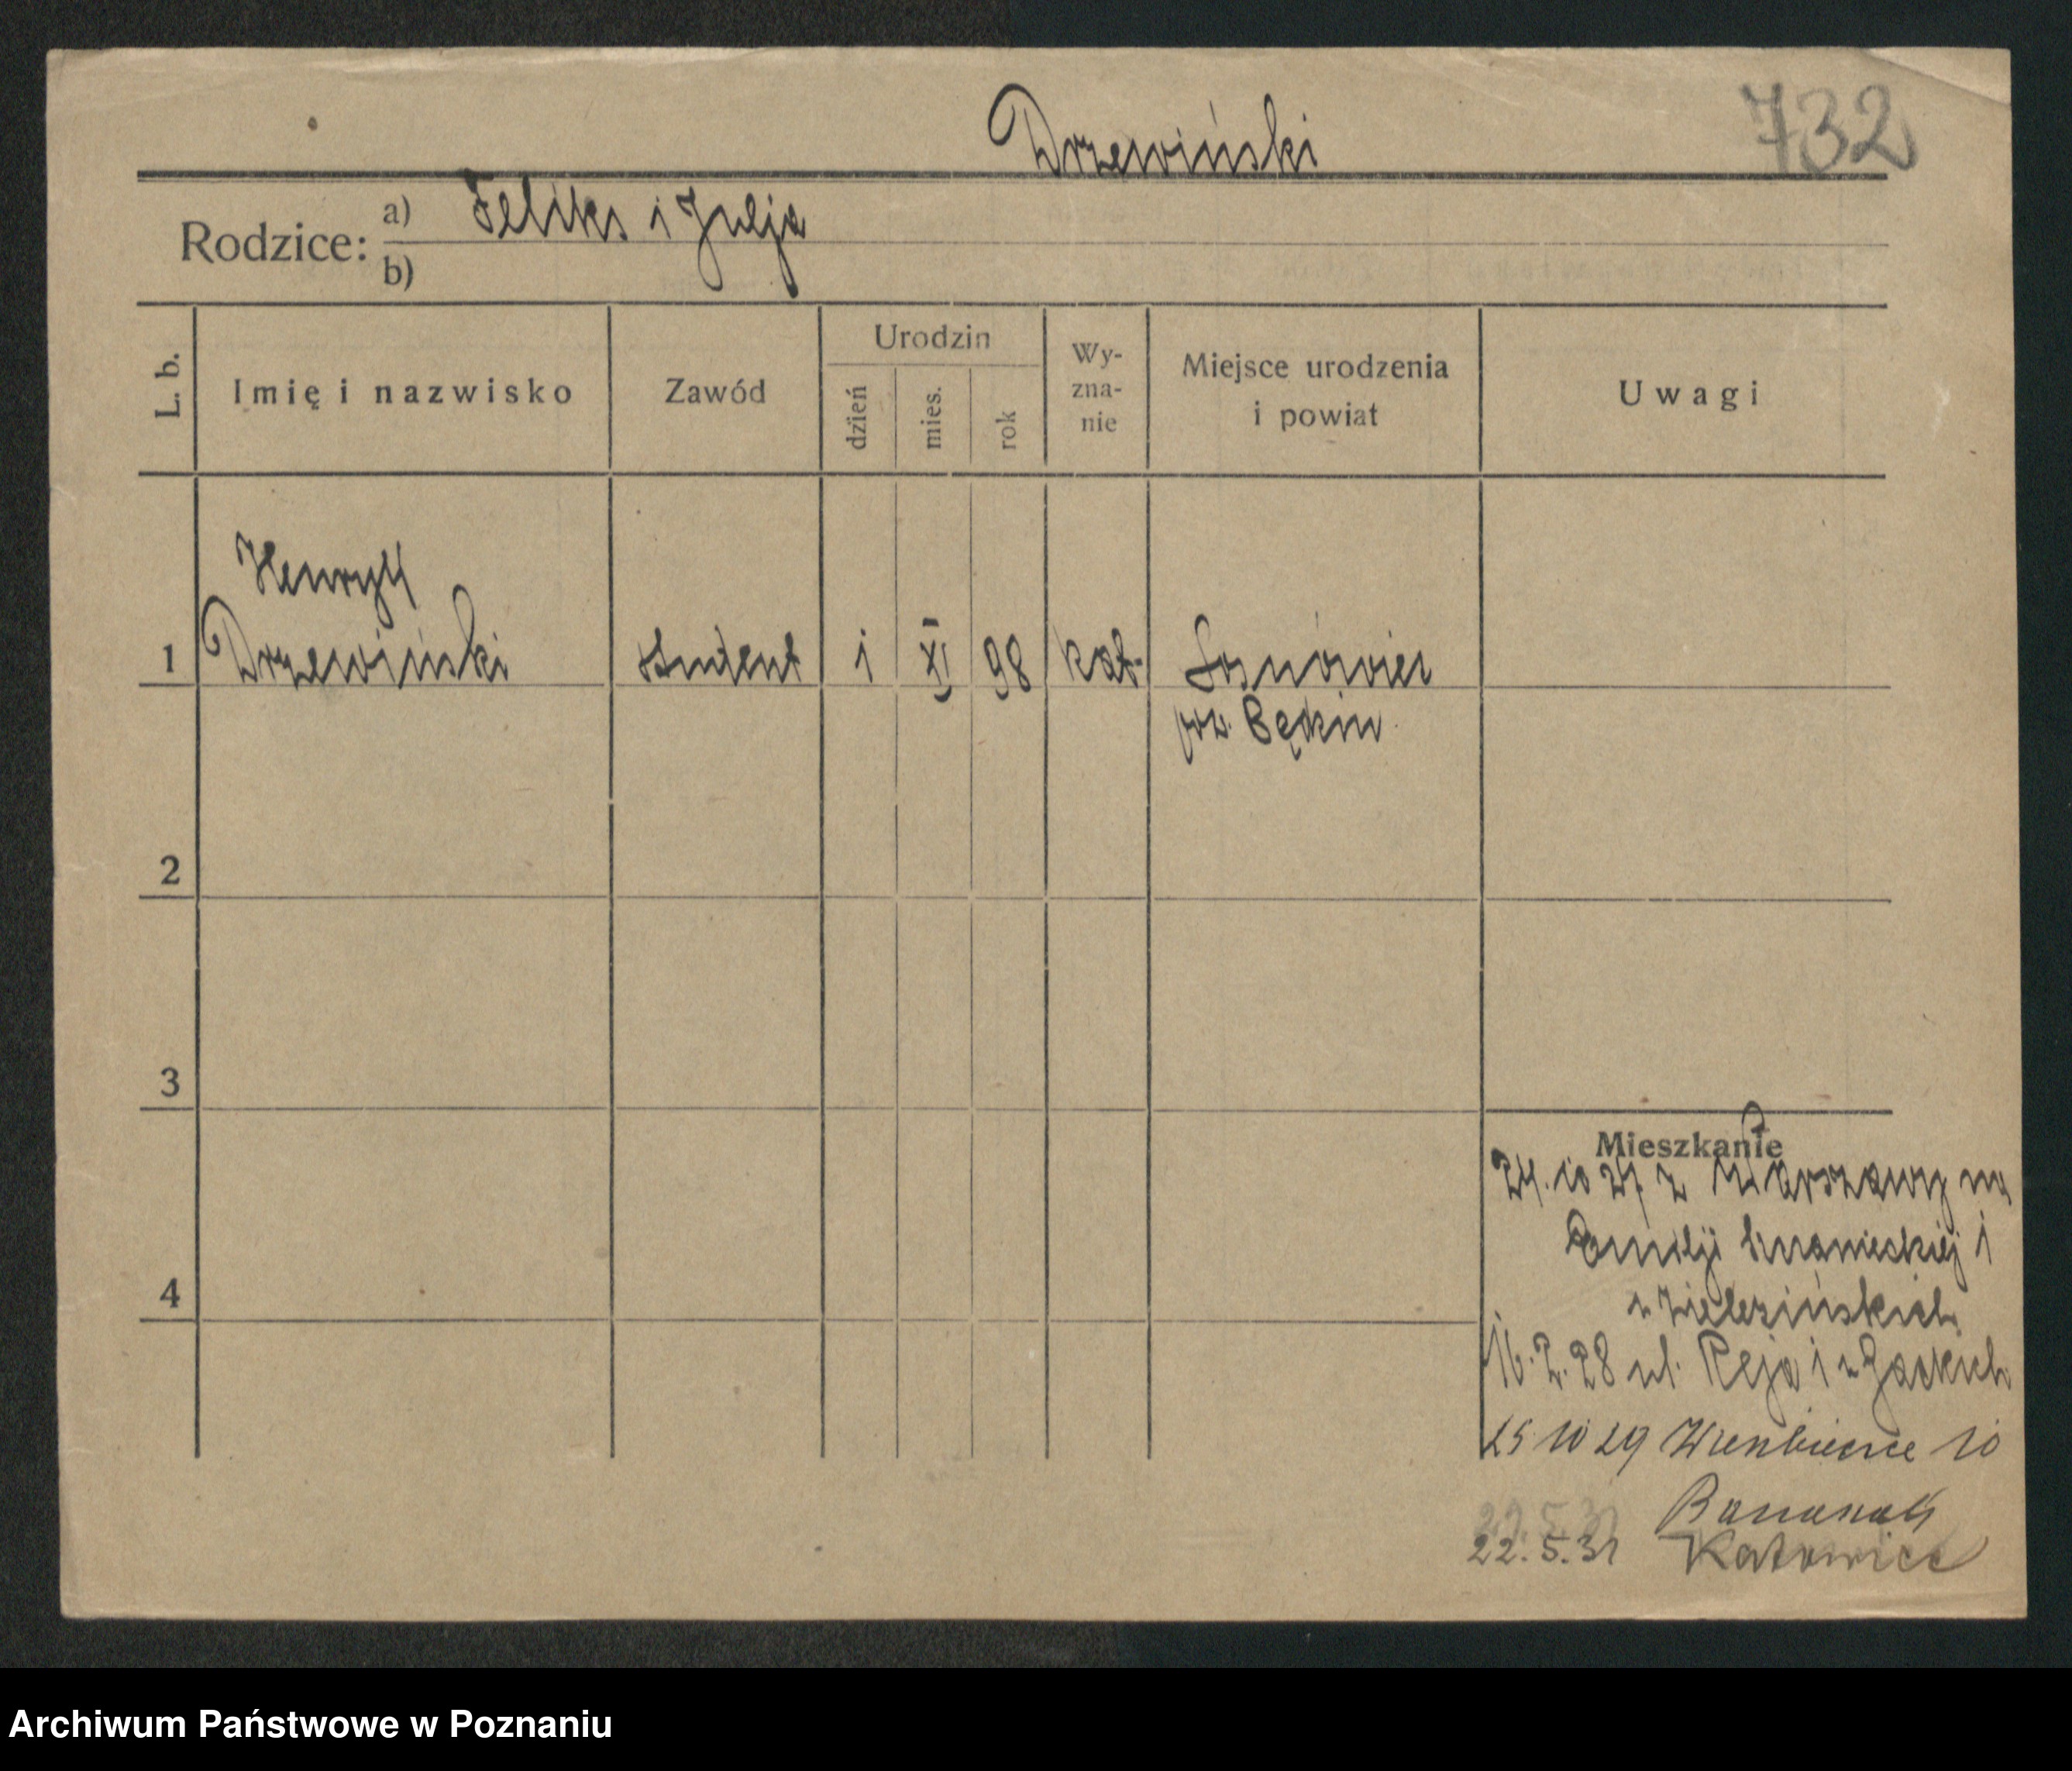 Drzewiński
732
Rodzice: a) Feliks i Julja
b)
L. b.
Imię i nazwisko
Zawód
Urodzin
dzień
mies.
rok
Wy-
zna-
nie
Miejsce urodzenia
i powiat
Uwagi
Henryk
1 Drzewiński student 1 XI 98 kat. Sosnowiec
pow. Będzin
2
3
4
Mieszkanie
24. 10 27 z Warszawy na
Emilji Sczanieckiej 1
u Zielezińskich
16. 2. 28 ul. Reja 1 u
25 10 29 Wierzbięcice 10
Banaszak
22. 5. 31
22. 5. 31 Katowice
Archiwum Państwowe w Poznaniu